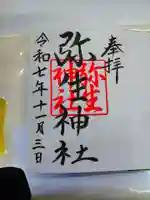 奉拝
弥生神社
弥生神社
令和七年十一月三日